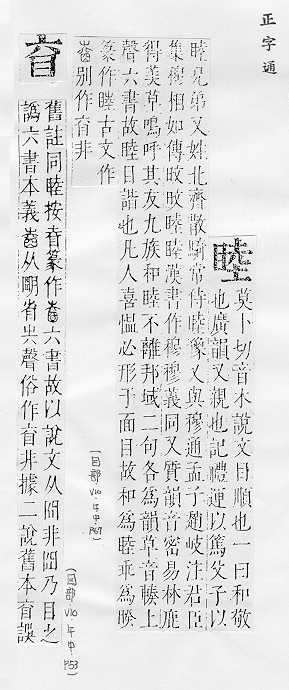 正字通
睦
莫卜切音木說文目順也一曰和敬
也廣韻又親也記禮運以篤父子以
睦兄弟又姓北齊散騎常侍睦豫又與穆通孟子趙岐注君臣
集穆相如傳旼旼睦睦漢書作穆穆義同又質韻音密易林鹿
得美草鳴呼其友九族和睦不離邦域二句各為韻草音上
聲六書故睦目諧也凡人喜慍必形于面目故和為睦乖為睽
篆作睦古文作
別作非
(目部 V10.午中 P.67)
舊註同睦按篆作六書故以說文从囧非囧乃目之
譌六書本義从朙省圥聲俗作非據二說舊本誤
(目部 V10 午中 P.53)